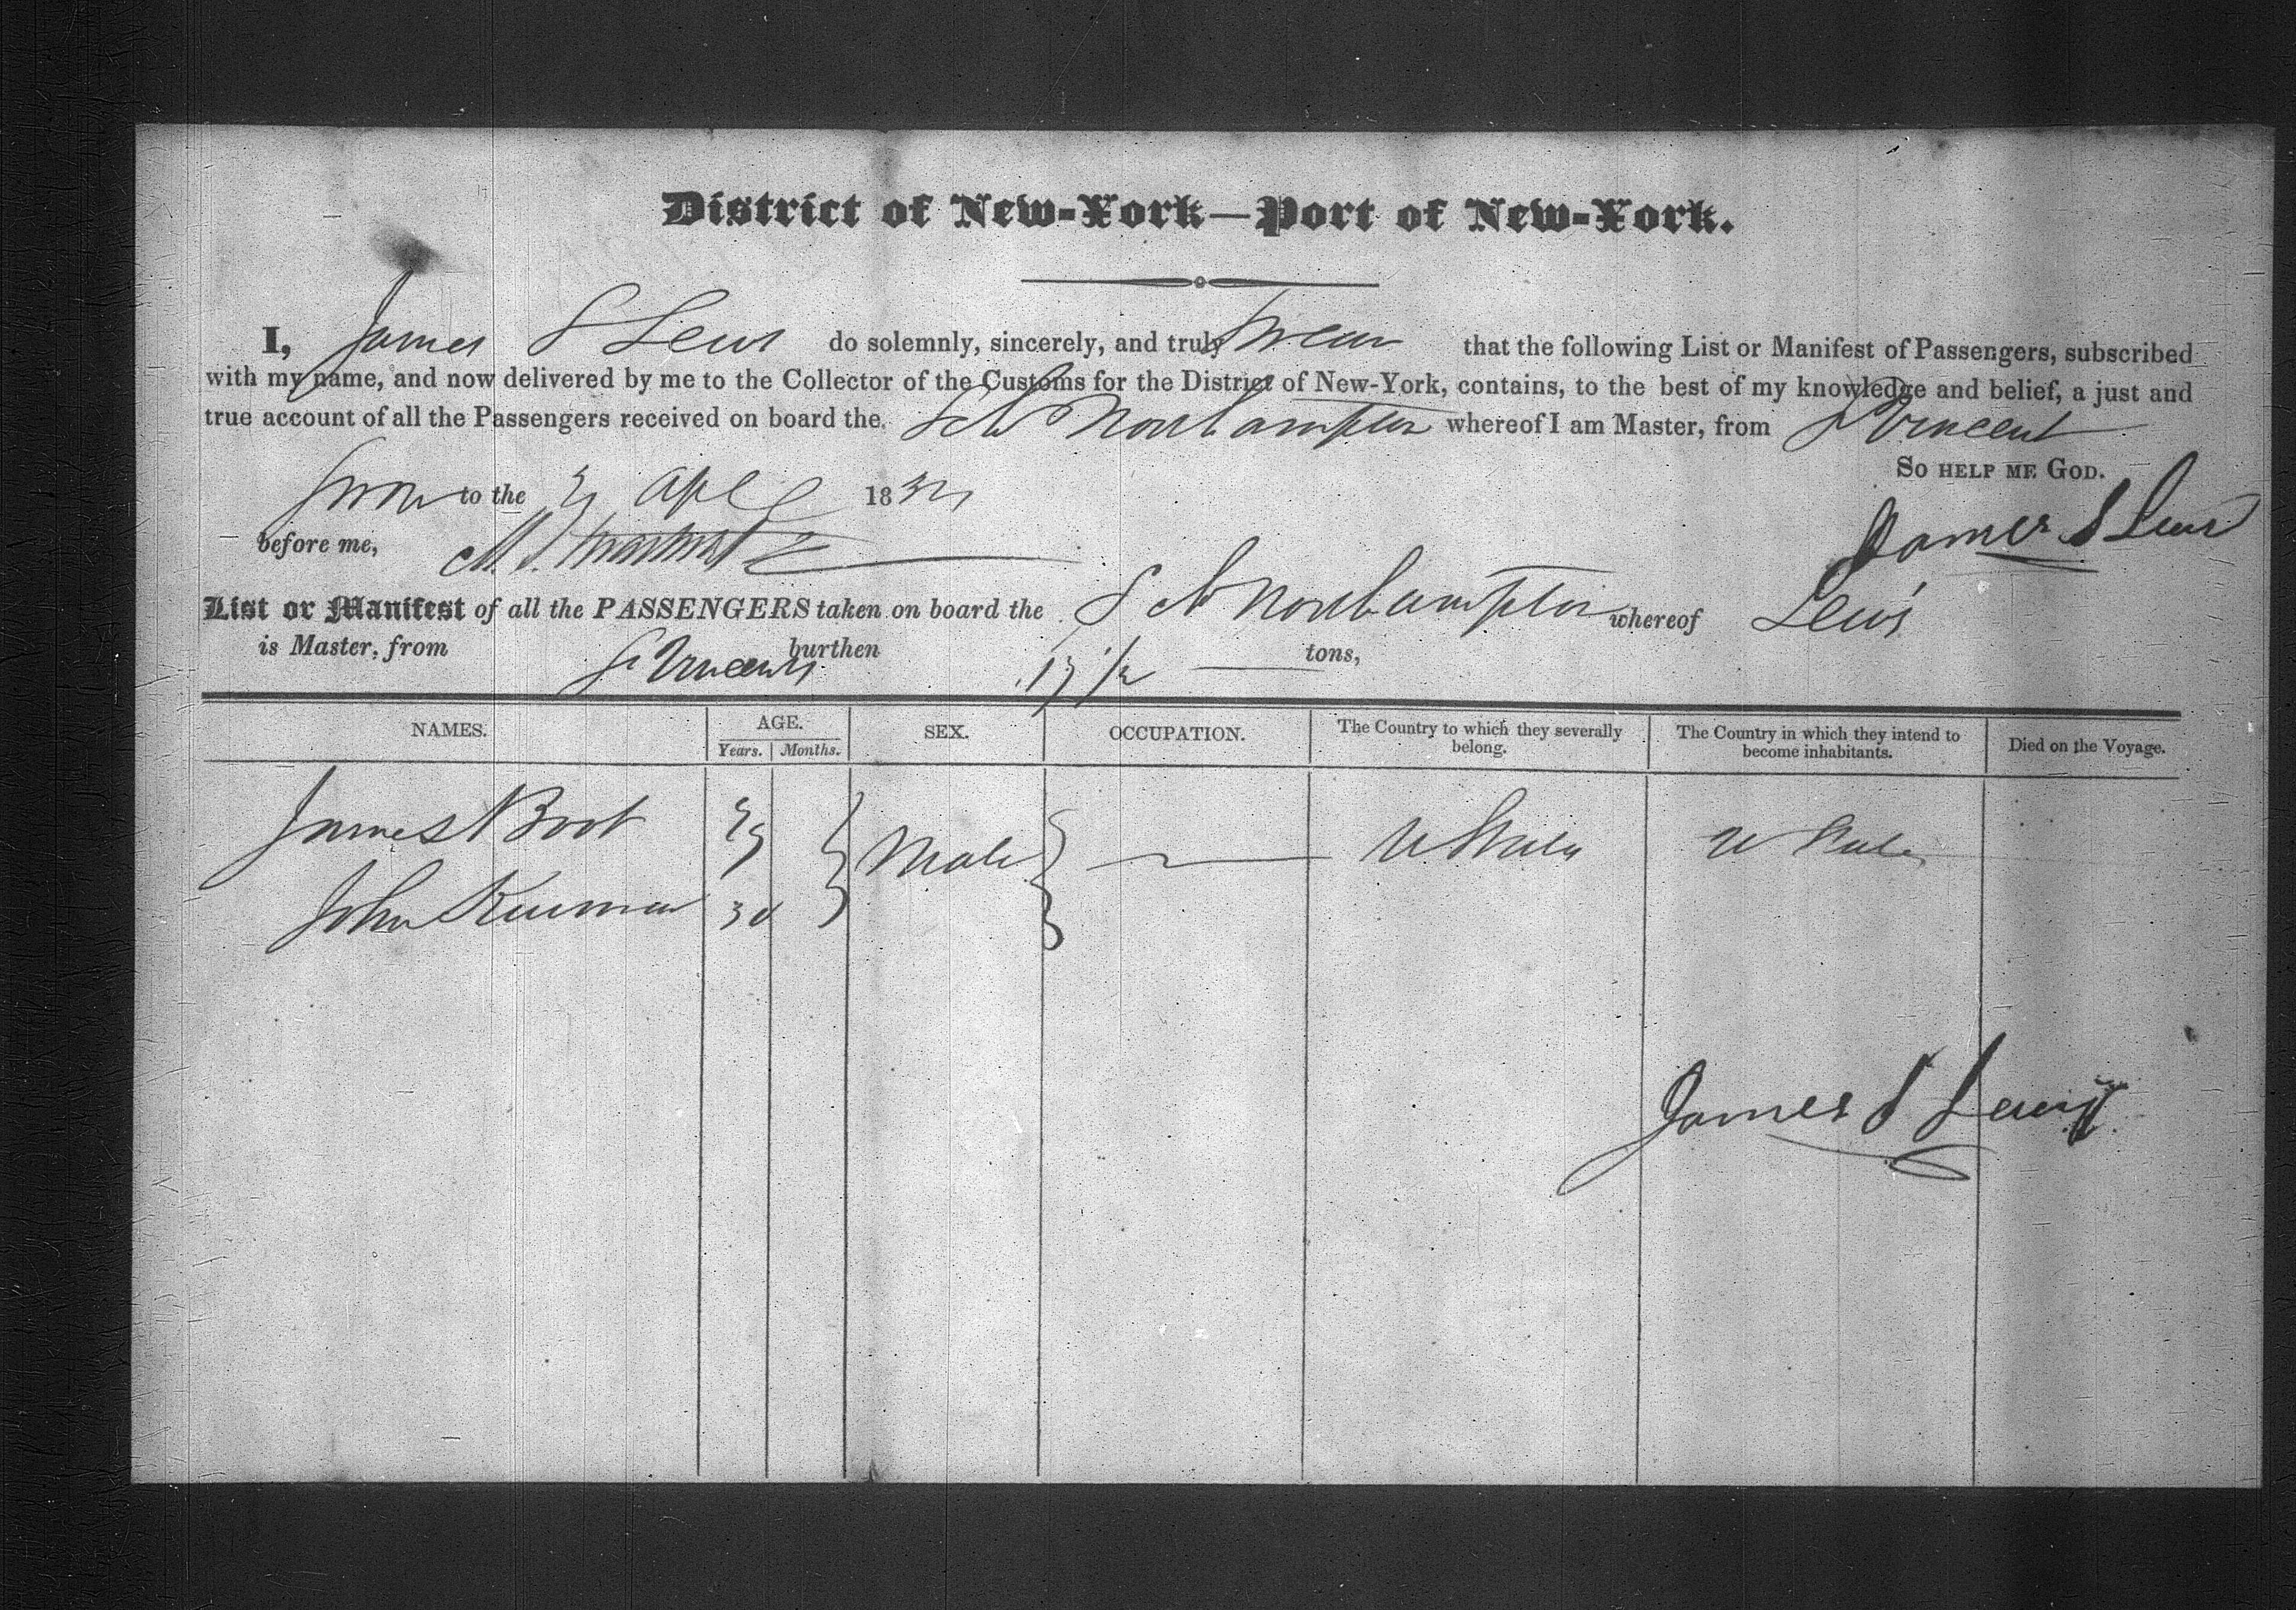 District of New-York—Port of New-York.
I, James S Lewis do solemnly, sincerely, and truly swear that the following List or Manifest of Passengers, subscribed
with my name, and now delivered by me to the Collector of the Customs for the District of New-York, contains, to the best of my knowledge and belief, a just and
true account of all the Passengers received on board the Sch Northampton whereof I am Master, from St Vincent
So help me God.
Sworn to the Apl 18
James S Lewis
before me,
List or Manifest of all the PASSENGERS taken on board the Sch Northampton whereof Lewis
is Master, from St Vincents burthen tons,
NAMES. AGE. SEX. OCCUPATION. The Country to which they severally belong. The Country in which they intend to become inhabitants. Died on the Voyage.
Years. Months.
James Boot Male U States U States
John 30
James S Lewis